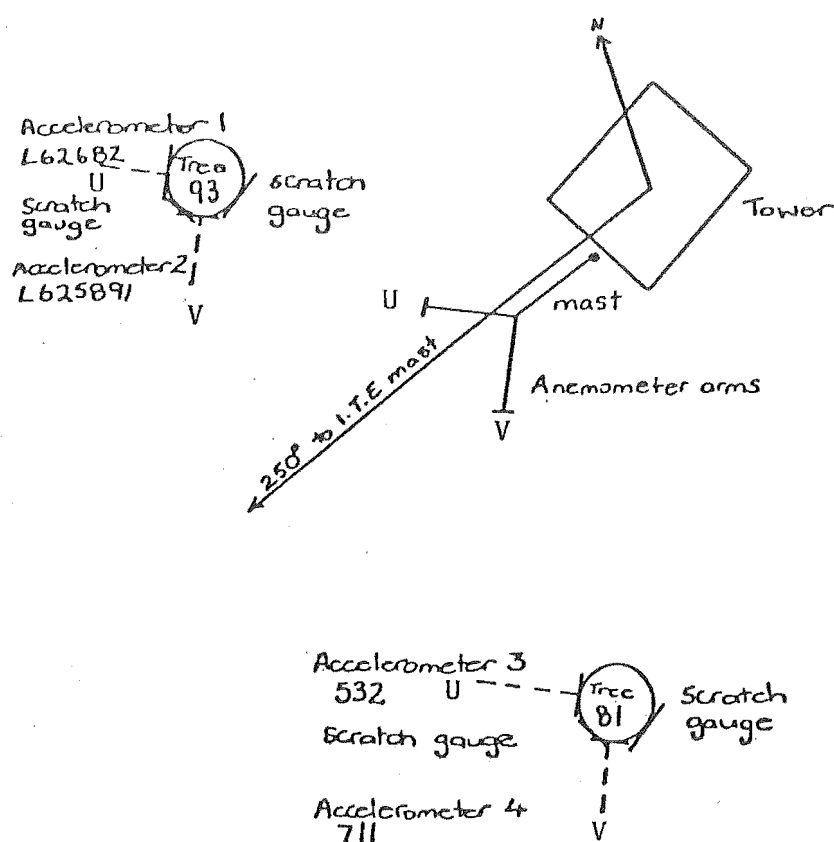 N
Accelerometer 1
L62682
U
Scratch
gauge
Tree
93
scratch
gauge
Accelerometer 2
L625891
V
Tower
U
mast
Anemometer arms
V
250° to I.T.E mast
Accelerometer 3
532 U
Scratch gauge
Tree
81
Scratch
gauge
Accelerometer 4
711
V